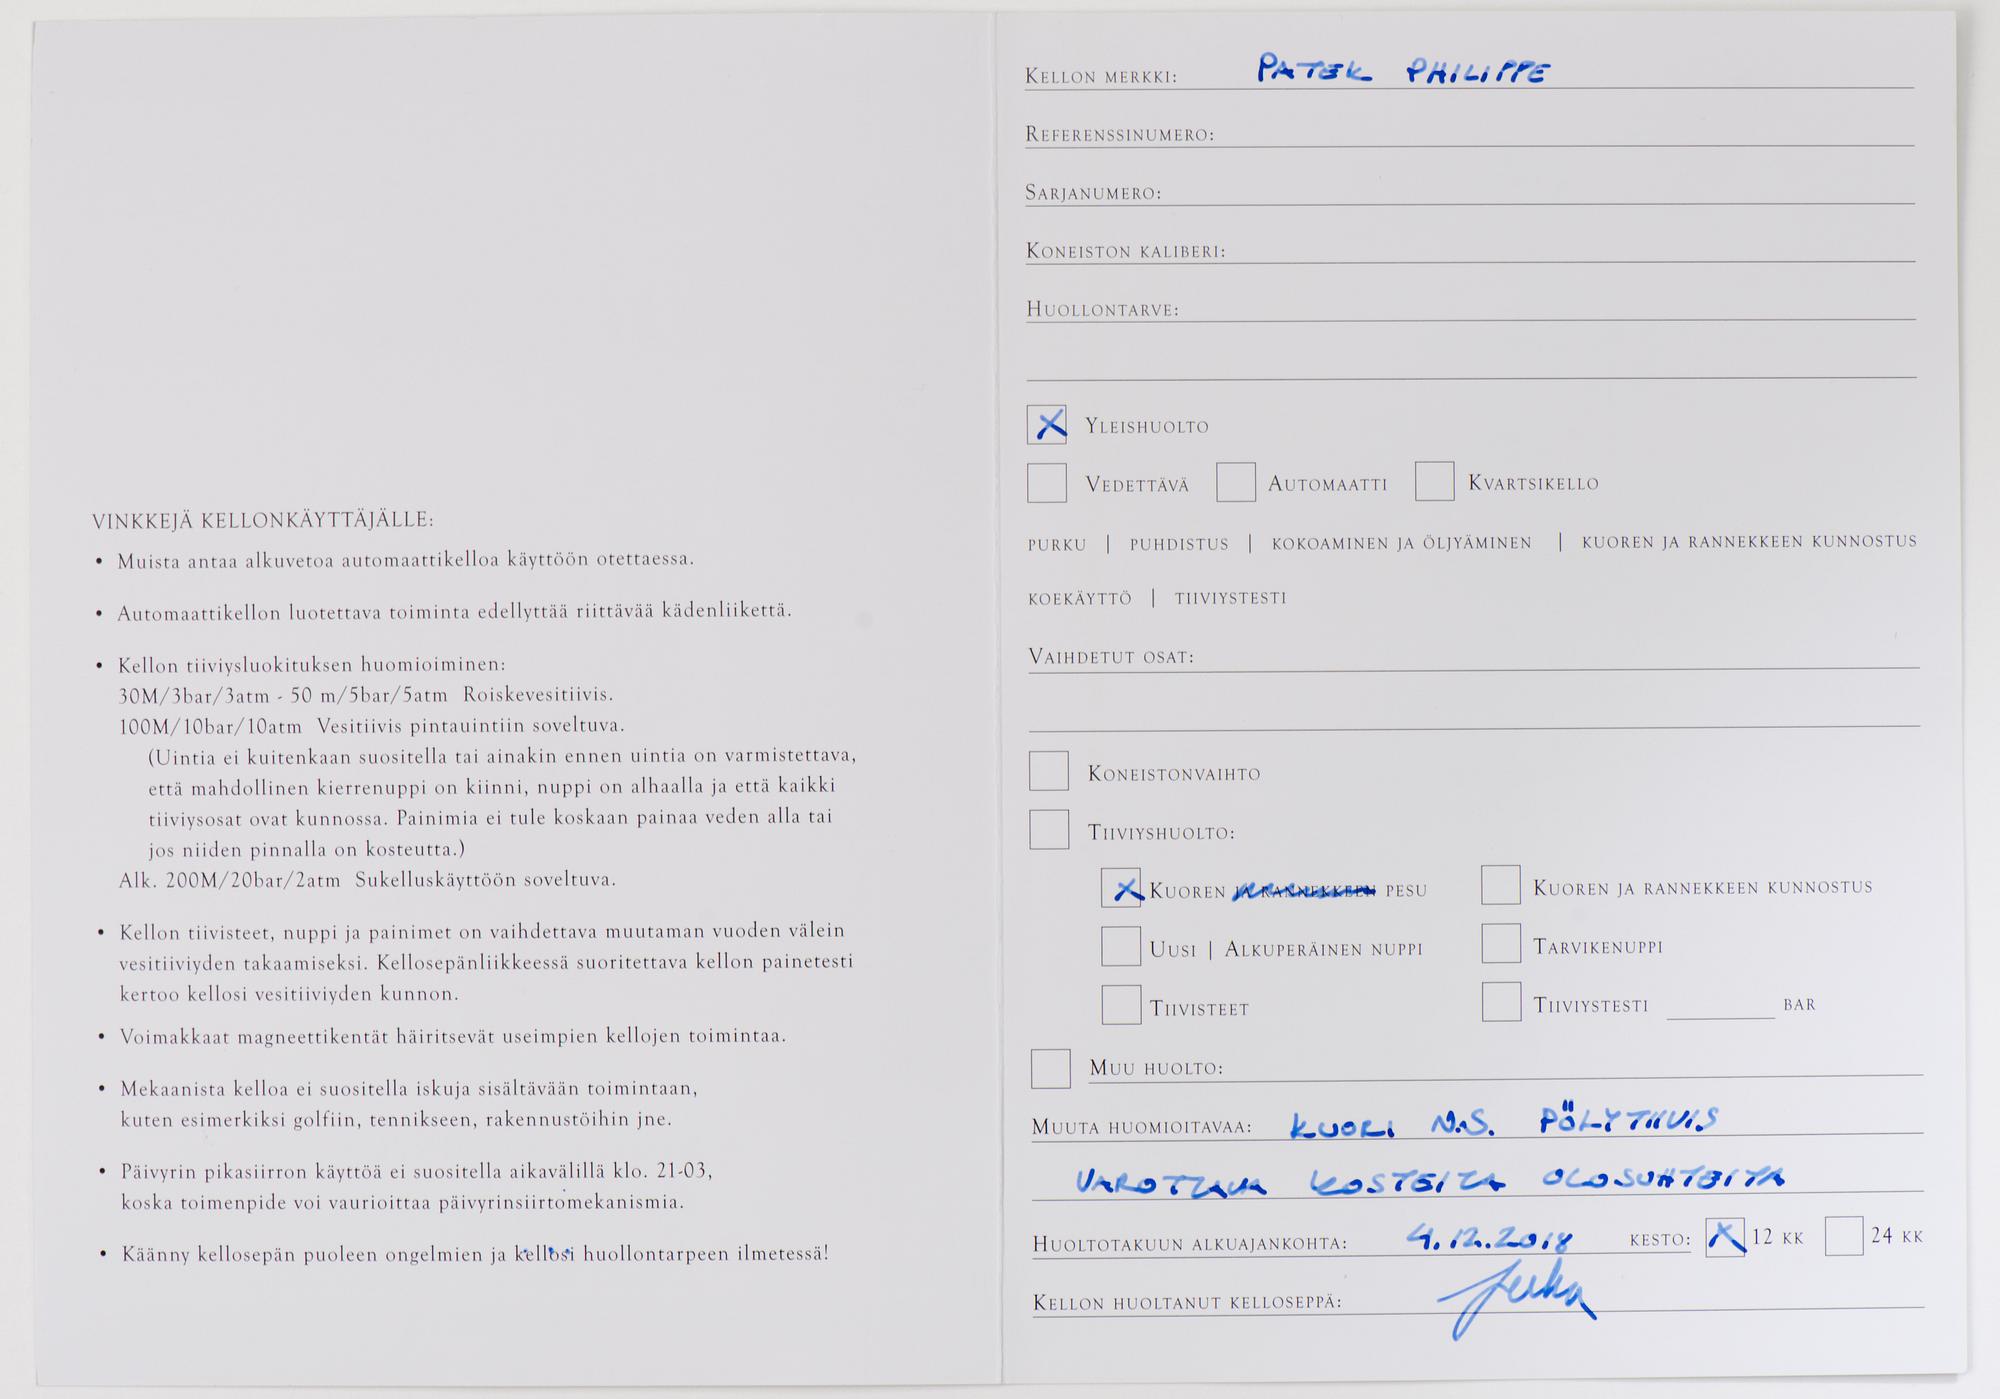 VINKKEJÄ KELLONKÄYTTÄJÄLLE:
• Muista antaa alkuvetoa automaattikelloa käyttöön otettaessa.
• Automaattikellon luotettava toiminta edellyttää riittävää kädenliikettä.
• Kellon tiiviysluokituksen huomioiminen:
30M/3bar/3atm - 50 m/5bar/5atm Roiskevesitiivis.
100M/10bar/10atm Vesitiivis pintauintiin soveltuva.
(Uintia ei kuitenkaan suositella tai ainakin ennen uintia on varmistettava,
että mahdollinen kierrenuppi on kiinni, nuppi on alhaalla ja että kaikki
tiiviysosat ovat kunnossa. Painimia ei tule koskaan painaa veden alla tai
jos niiden pinnalla on kosteutta.)
Alk. 200M/20bar/2atm Sukelluskäyttöön soveltuva.
• Kellon tiivisteet, nuppi ja painimet on vaihdettava muutaman vuoden välein
vesitiiviyden takaamiseksi. Kellosepänliikkeessä suoritettava kellon painetesti
kertoo kellosi vesitiiviyden kunnon.
• Voimakkaat magneettikentät häiritsevät useimpien kellojen toimintaa.
• Mekaanista kelloa ei suositella iskuja sisältävään toimintaan,
kuten esimerkiksi golfiin, tennikseen, rakennustöihin jne.
• Päivyrin pikasiirron käyttöä ei suositella aikavälillä klo. 21-03,
koska toimenpide voi vaurioittaa päivyrinsiirtomekanismia.
• Käänny kellosepän puoleen ongelmien ja kellosi huollontarpeen ilmetessä!
KELLON MERKKI: PATEK PHILIPPE
REFERENSSINUMERO:
SARJANUMERO:
KONEISTON KALIBERI:
HUOLLONTARVE:
X YLEISHUOLTO
VEDETTÄVÄ AUTOMAATTI KVARTSIKELLO
PURKU | PUHDISTUS | KOKOAMINEN JA ÖLJYÄMINEN | KUOREN JA RANNEKKEEN KUNNOSTUS
KOEKÄYTTÖ | TIIVIYSTESTI
VAIHDETUT OSAT:
KONEISTONVAIHTO
TIIVIYSHUOLTO:
X KUOREN JA RANNEKKEEN PESU KUOREN JA RANNEKKEEN KUNNOSTUS
UUSI | ALKUPERÄINEN NUPPI TARVIKENUPPI
TIIVISTEET TIIVIYSTESTI BAR
MUU HUOLTO:
MUUTA HUOMIOITAVAA: KUORI N.S. PÖLYTIIVIS
VAROTTAVA KOSTEITA OLOSUHTEITA
HUOLTOTAKUUN ALKUAJANKOHTA: 4.12.2018 KESTO: X 12 KK 24 KK
KELLON HUOLTANUT KELLOSEPPÄ: